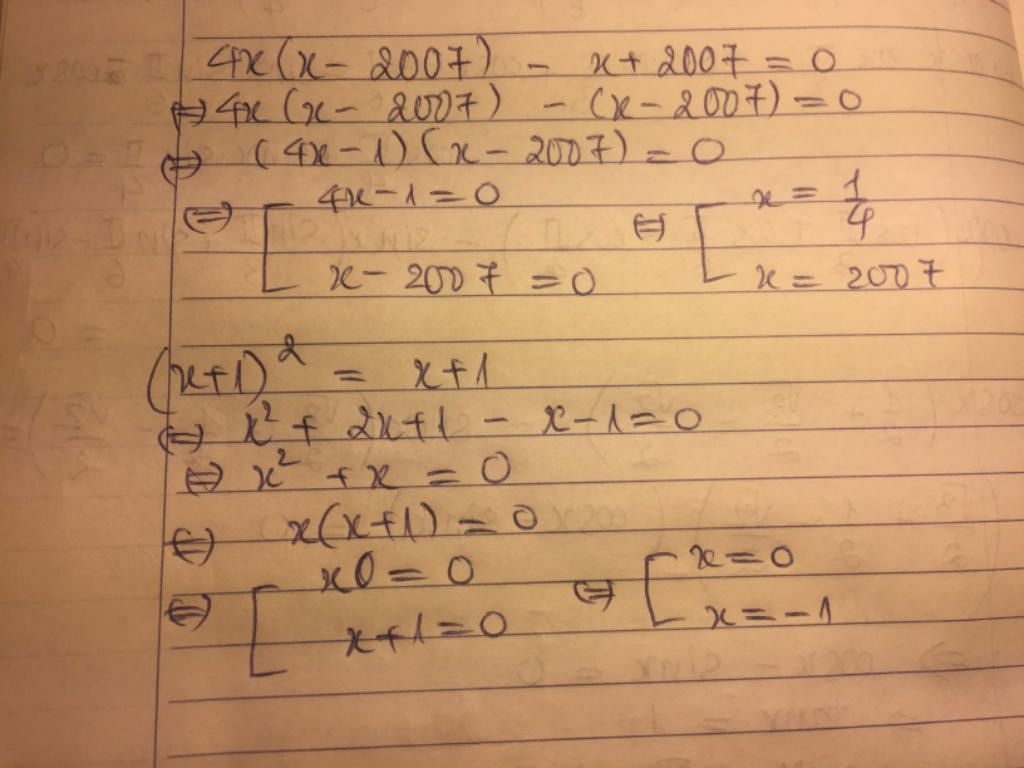 4x(x - 2007) - x + 2007 = 0
⇔ 4x(x - 2007) - (x - 2007) = 0
⇔ (4x - 1)(x - 2007) = 0
⇔ [ 4x - 1 = 0 ⇔ [ x = 1/4
x - 2007 = 0 x = 2007
(x+1)² = x+1
⇔ x² + 2x+1 - x - 1 = 0
⇔ x² + x = 0
⇔ x(x+1) = 0
⇔ [ x0 = 0 ⇔ [ x = 0
x+1 = 0 x = -1